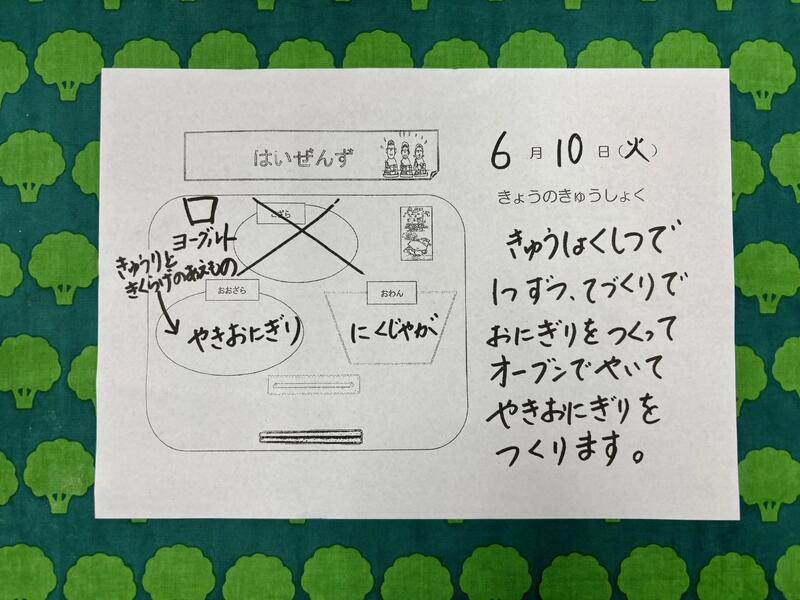 はいぜんず
6月10日(火)
きょうのきゅうしょく
こざら
ヨーグルト
きゅうりと
きくらげのあえもの
おおざら
やきおにぎり
おわん
にくじゃが
きゅうしょくしつで
1つずつ、てづくりで
おにぎりをつくって
オーブンでやいて
やきおにぎりを
つくります。